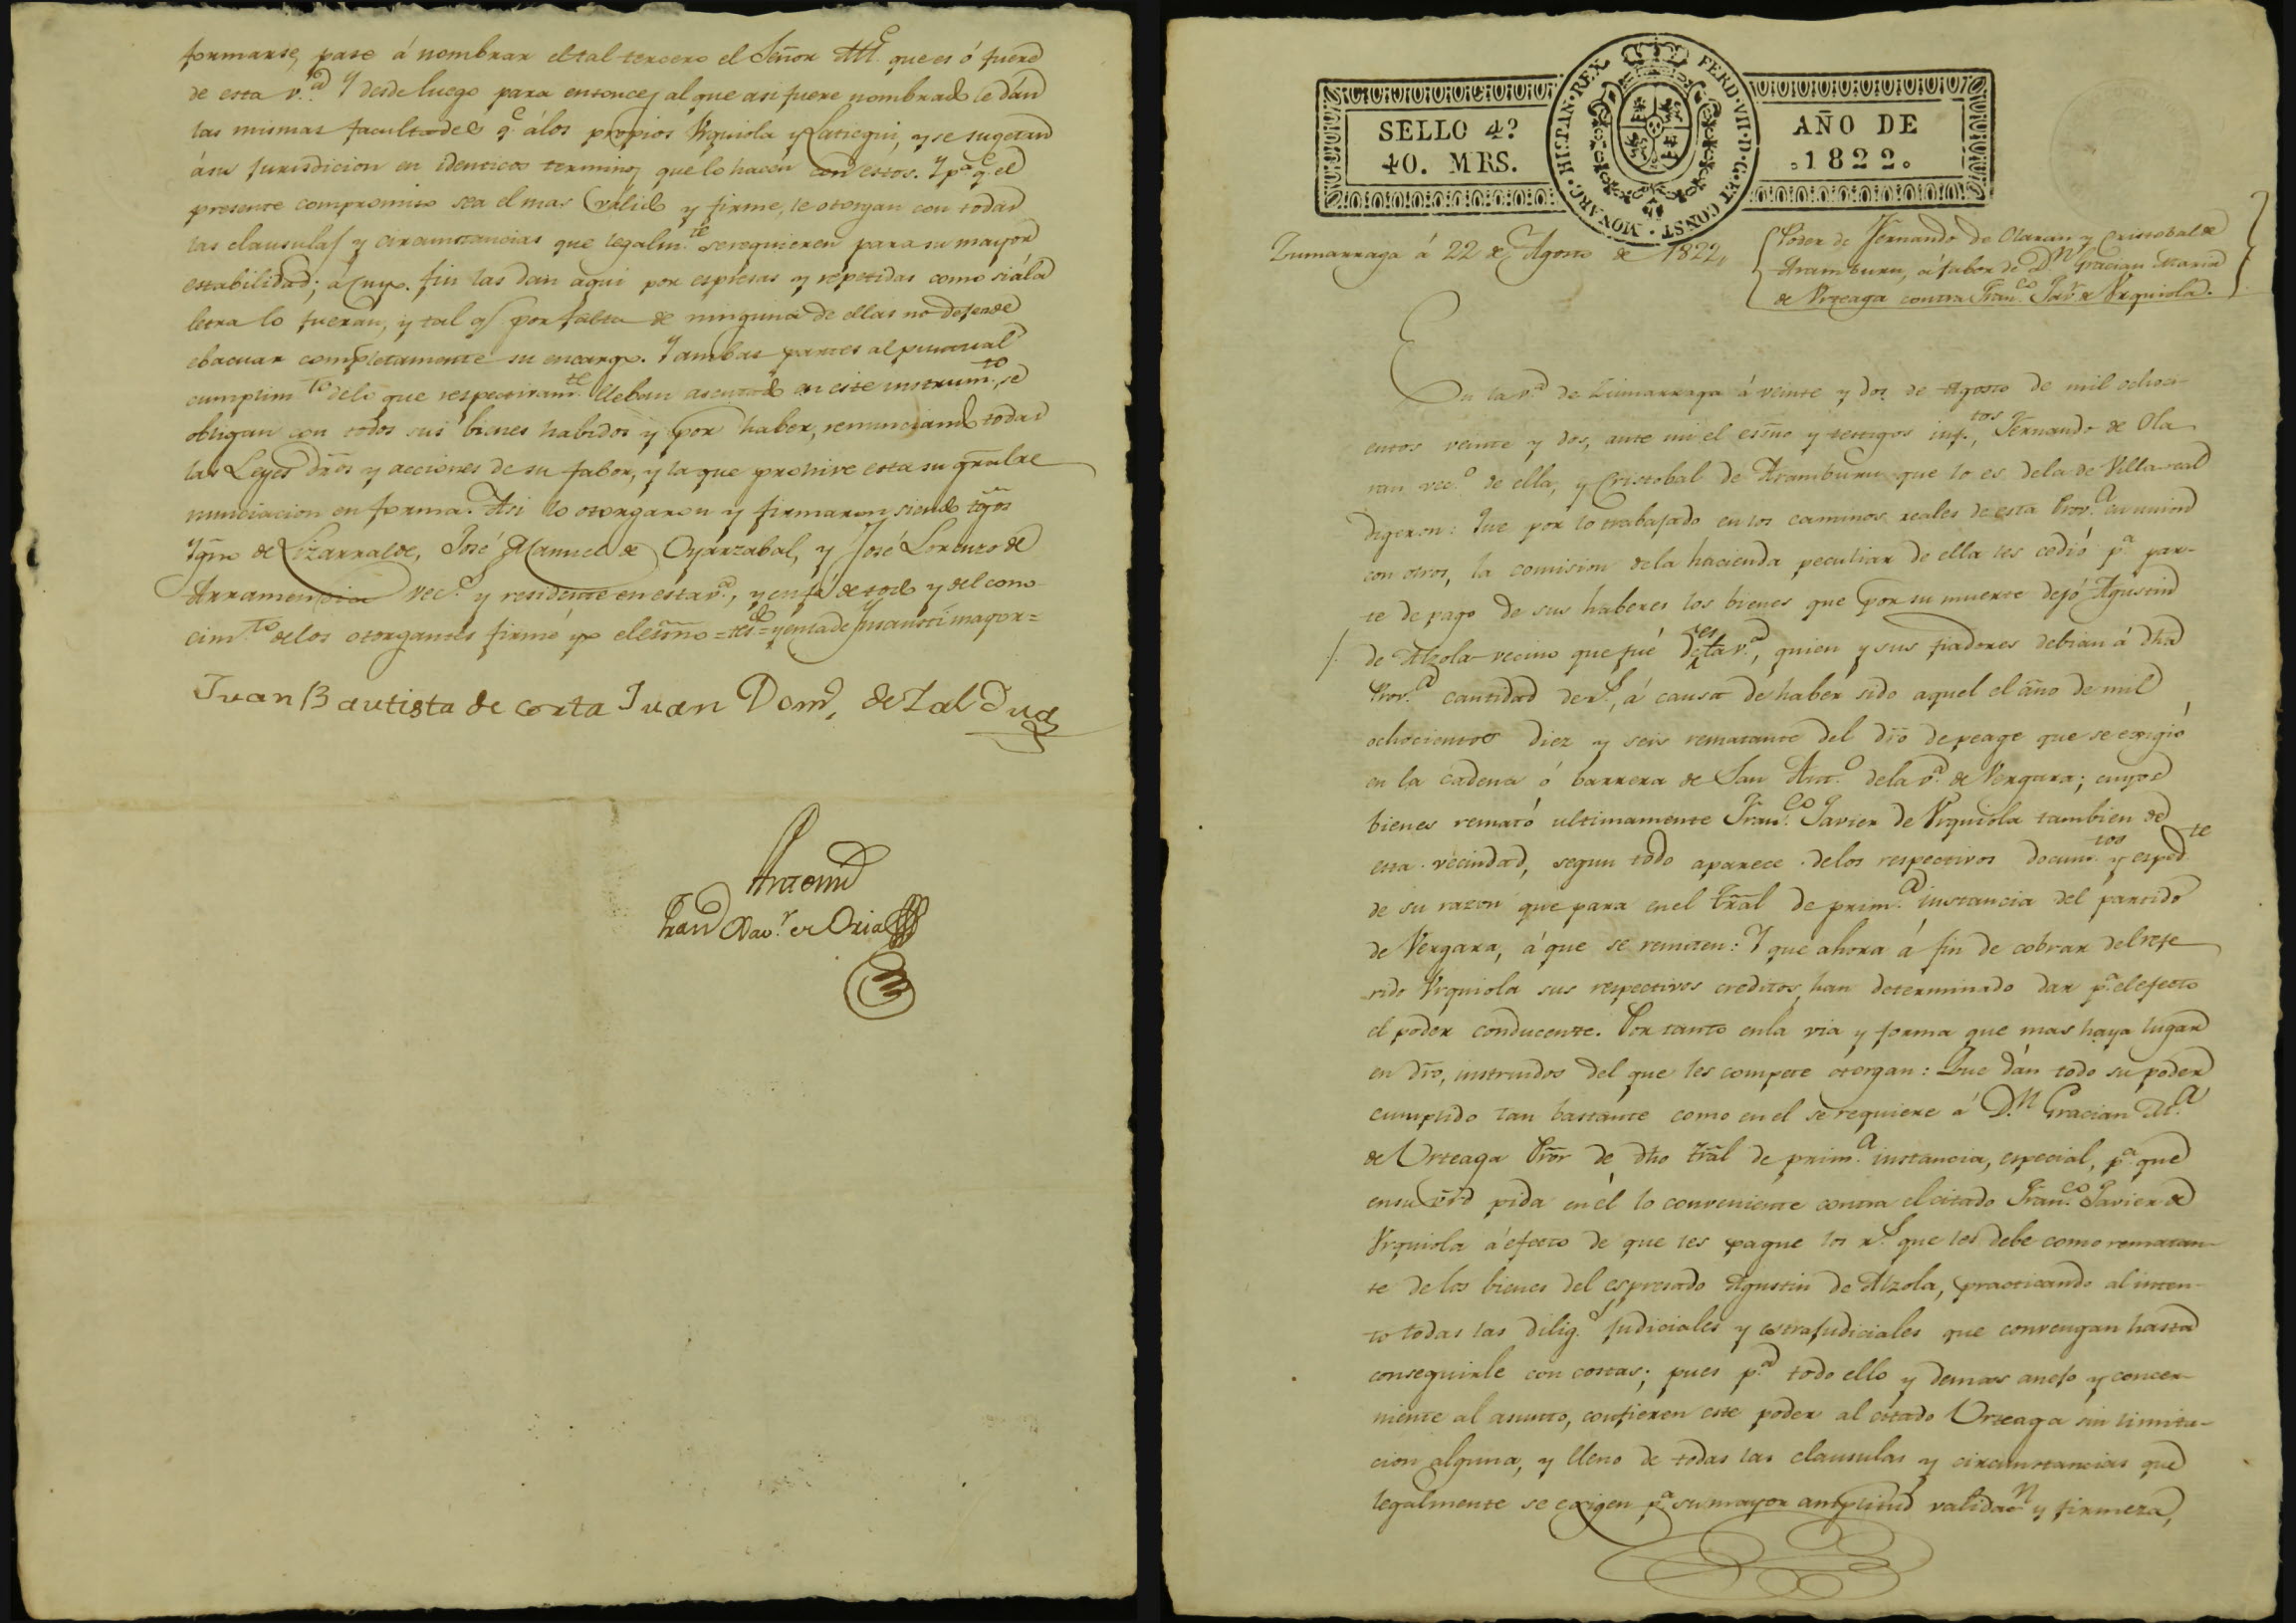 formarse, pase á nombrar el tal tercero el Señor Alc.e que es ó fuere
de esta v.a Y desde luego para entonces al que asi fuere nombrado le dán
las mismas facultades q.e á los propios Urquiola y Lasiegui, y se sugetan
á su jurisdicion en identicos terminos que lo hacen con estos. Y p.a q.e el
presente compromiso sea el mas válido y firme, le otorgan con todas
las clausulas y circunstancias que legalm.te se requieren para su mayor
estabilidad; á cuyo fin las dan aqui por espresas y repetidas como si á la
letra lo fueran, y tal q.e por falta de ninguna de ellas no dejen de
ebacuar completamente su encargo. Y ambas partes al puntual
cumplim.to de lo que respectivam.te lleban asentado en este instrum.to, se
obligan con todos sus bienes habidos y por haber, renunciando todas
las Leyes dr̃os y acciones de su fabor, y la que prohive esta su gr̃al re
nunciacion en forma. Asi lo otorgaron y firmaron siendo tg̃os
Ygñ.o de Lizarralde, José Manuel de Oyarzabal, y José Lorenzo de
Arramendia vec.s y residente en esta v.a, y en fé de todo y del cono-
cim.to de los otorgantes firmé yo el esñno =
Juan Bautista de corta Juan Dom.o de Zaldua
Antemi
Fran.co Xav.r de Oria
SELLO 4º
40. MRS.
HISPAN·REX FERD·VII·D·G·ET CONST·MONARC·
AÑO DE
1822.
Zumarraga á 22 de Agosto de 1822,
Poder de Fernando de Olaran y Cristobal de
Aramburu, á fabor de D.n Gracian Maria
de Urteaga contra Fran.co Jav.r de Urquiola.
En la v.a de Zumarraga á veinte y dos de Agosto de mil ochoci-
entos veinte y dos, ante mi el esñno y testigos inf.tos, Fernando de Ola
ran vec.o de ella, y Cristobal de Aramburu que lo es de la de Villareal
digeron: Que por lo trabajado en los caminos reales de esta Prov.a en union
con otros, la comision de la hacienda peculiar de ella les cedió p.a par-
te de pago de sus haberes los bienes que por su muerte dejó Agustin
de Alzola vecino que fué de esta v.a, quien y sus fiadores debian á dha
Prov.a cantidad de r.s, á causa de haber sido aquel el año de mil
ochocientos diez y seis rematante del dr̃o de peage que se exigió
en la cadena ó barrera de San Ant.o de la v.a de Vergara; cuyos
bienes remató ultimamente Fran.co Javier de Urquiola tambien de
esta vecindad, segun todo aparece de los respectivos docum.tos y esped.te
de su razon que para en el Tr̃al de prim.a instancia del partido
de Vergara, á que se remiten: Y que ahora á fin de cobrar del refe
rido Urquiola sus respectivos creditos, han determinado dar p.a el efecto
el poder conducente. Por tanto en la via y forma que mas haya lugar
en dr̃o, instruidos del que les compete otorgan: Que dán todo su poder
cumplido tan bastante como en el se requiere á D.n Gracian M.a
de Urteaga Pr̃or de dho Tr̃al de prim.a instancia, especial, p.a que
en su vr̃d pida en él lo conveniente contra el citado Fran.co Javier de
Urquiola á efecto de que les pague los r.s que les debe como rematan-
te de los bienes del espresado Agustin de Alzola, practicando al inten-
to todas las dilig.s judiciales y extrajudiciales que convengan hasta
conseguirle con costas; pues p.a todo ello y demas anejo y concer-
niente al asunto, confieren este poder al citado Urteaga sin limita-
cion alguna, y lleno de todas las clausulas y circunstancias que
legalmente se exigen p.a su mayor amplitud validac.n y firmeza,